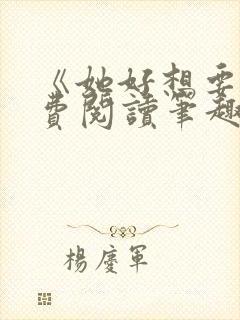 《她好想要
費閱讀筆趣
楊慶軍